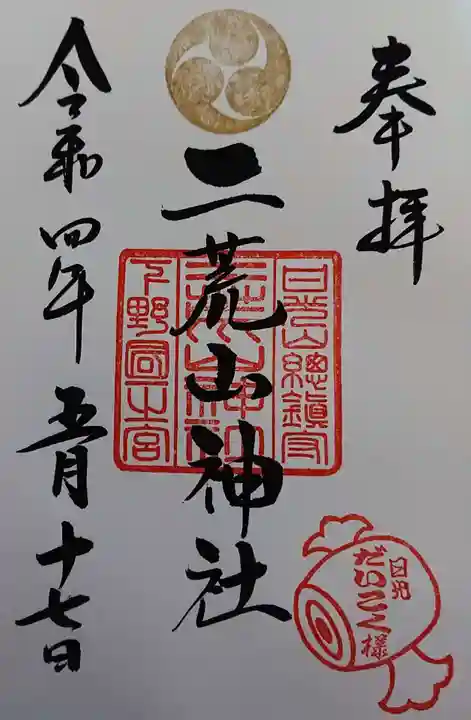 奉拝
二荒山神社
日光山總鎮守
二荒山神社
下野國一之宮
令和四年五月十七日
日光
だいこく様